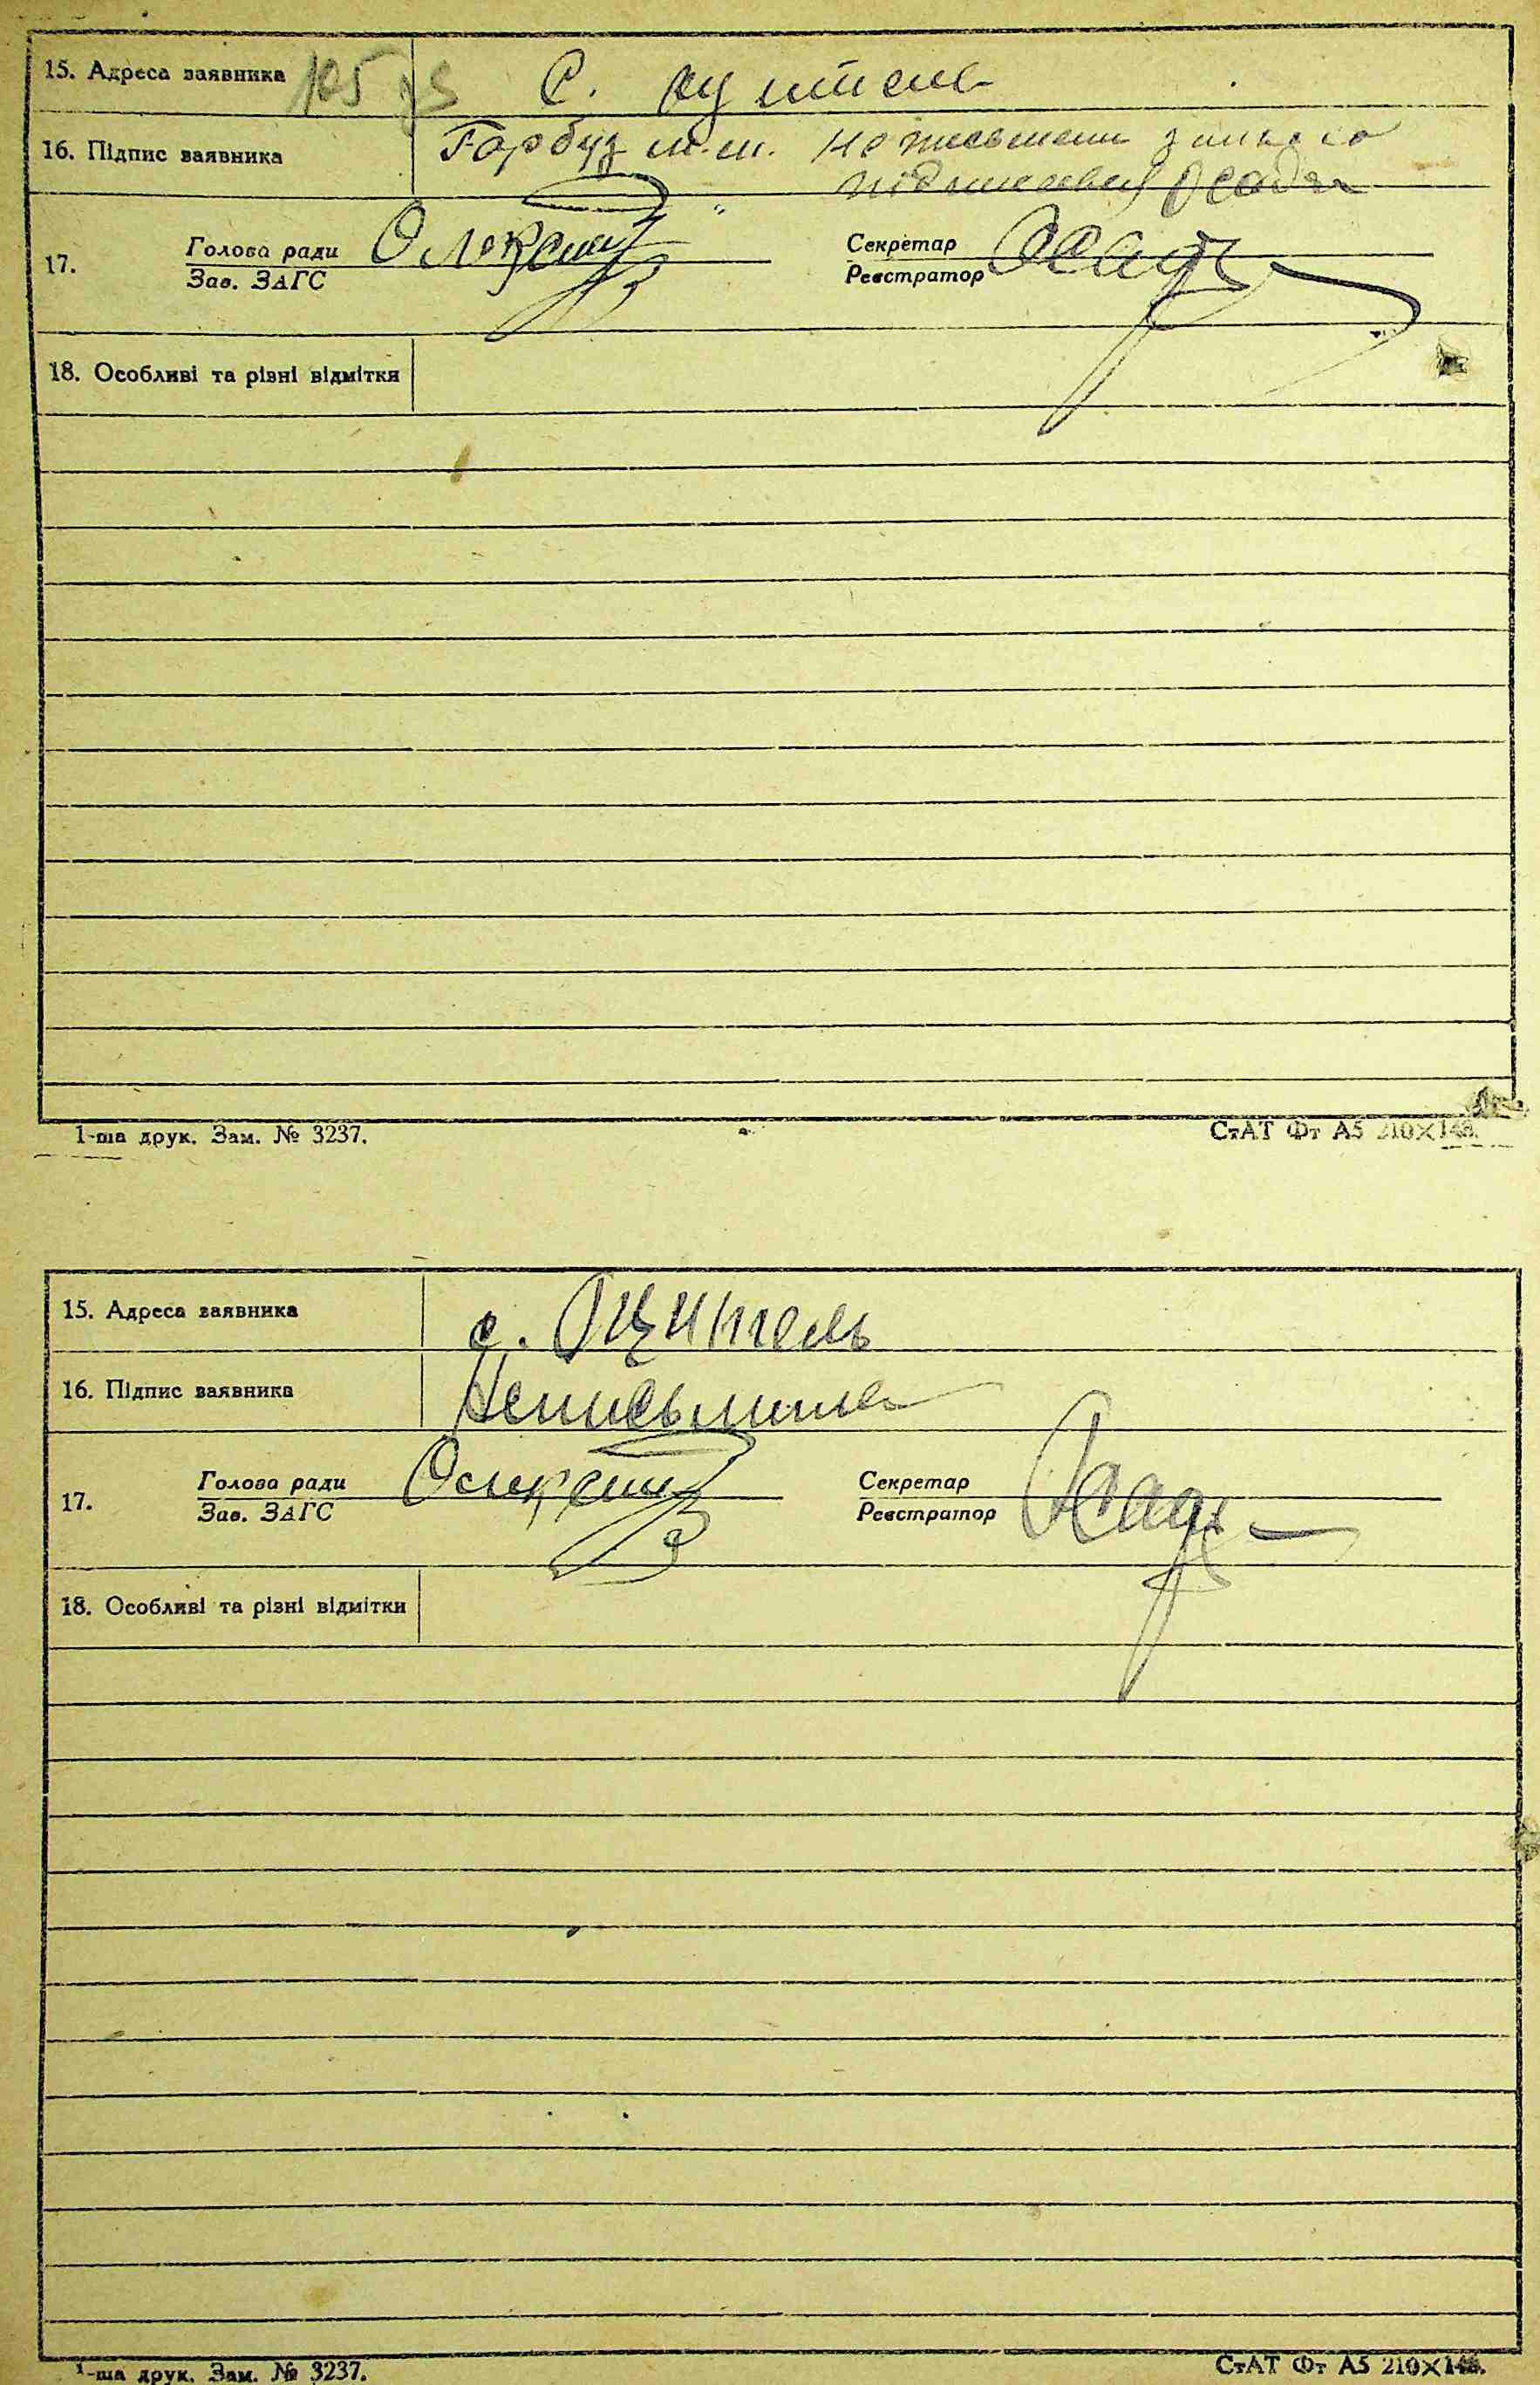 15. Адреса заявника 105 с. Рцитель
16. Підпис заявника Гарбуз не письмени за нього
Осад
17. Голова ради Олексш Секретар Осад
Зав. ЗАГС Реєстратор
18. Особливі та різні відмітки
1-ша друк. Зам. № 3237. СтАТ Фт А5 210×148.
15. Адреса заявника с. Рцитель
16. Підпис заявника Неписьмина
17. Голова ради Секретар Осад
Зав. ЗАГС Реєстратор
18. Особливі та різні відмітки
1-ша друк. Зам. № 3237. СтАТ Фт А5 210×148.